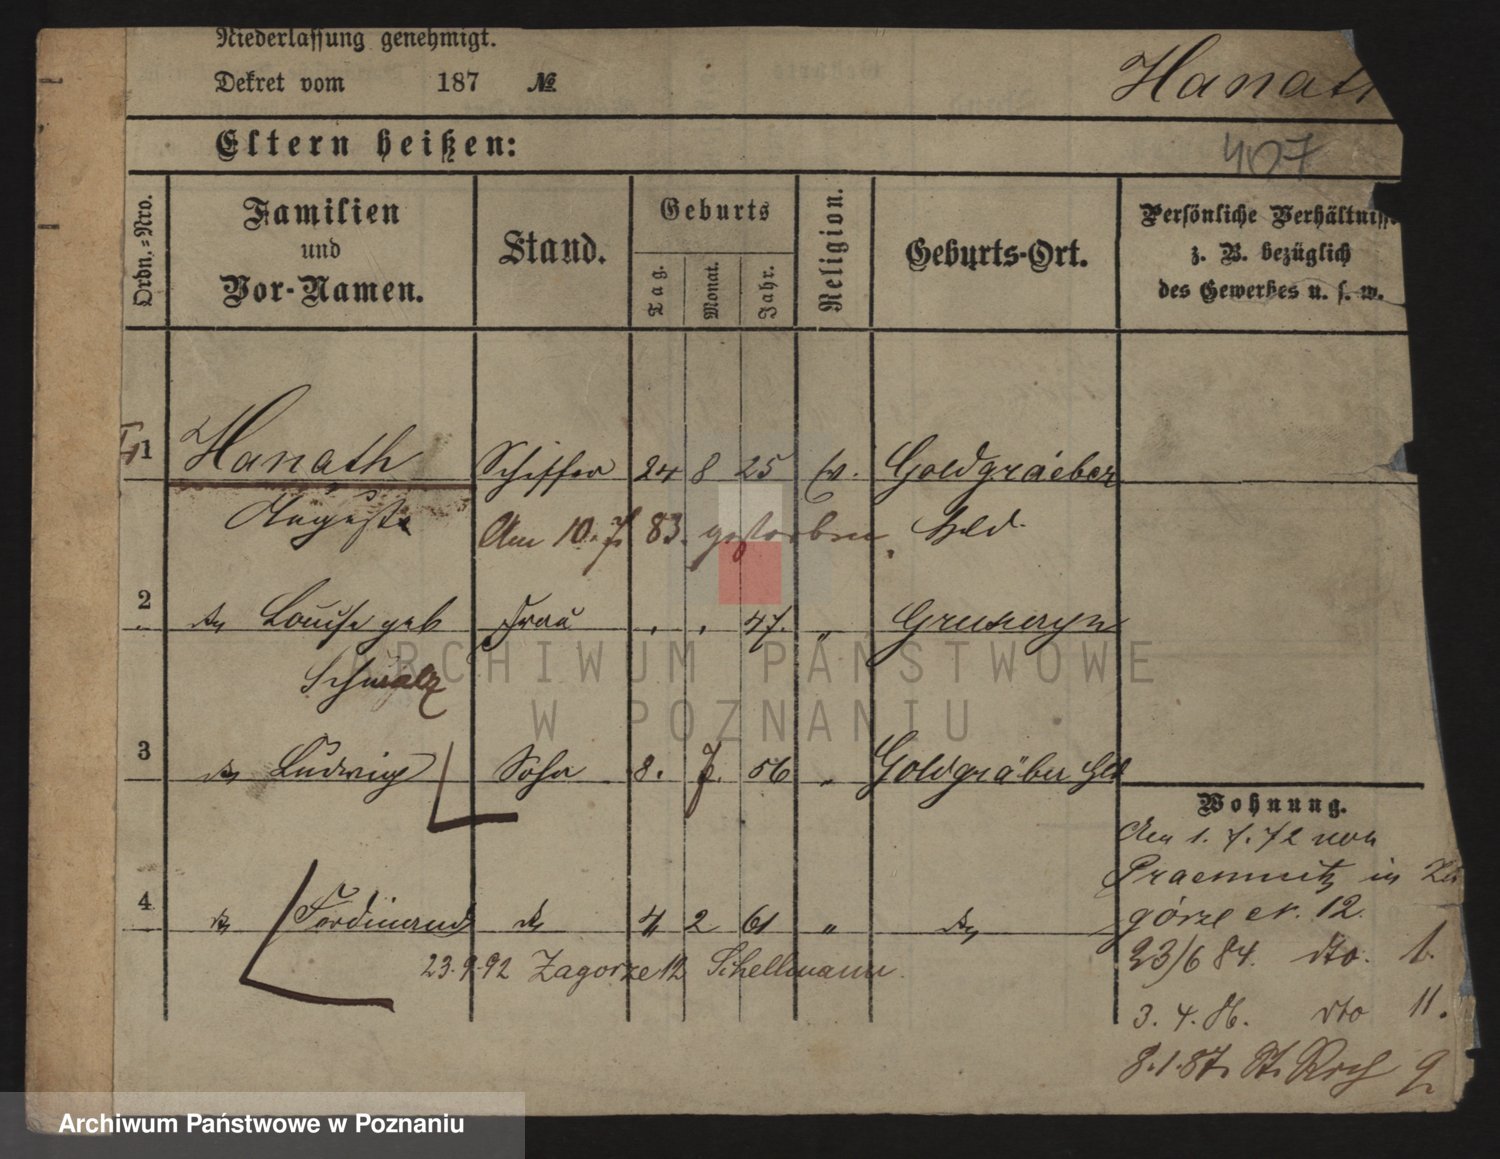 Niederlassung genehmigt.
Dekret vom 187 №
Hanath
407
Eltern heißen:
Ordn.=Nro.
Familien
und
Vor-Namen.
Stand.
Geburts
Tag.
Monat.
Jahr.
Religion.
Geburts-Ort.
Persönliche Verhältnisse
z. B. bezüglich
des Gewerbes u. s. w.
1 Hanath Schiffer 24 8 25 ev. Goldgraeber
August Am 10. 7. 83. gestorben. Hld
2 Louise geb Frau 47. "
Schmalz
3 Ludwig Sohn 8. 7. 56 " Goldgräber Hld
4 Ferdinand 4 2 61 "
23.9.92 Zagorze 12 Schellmann.
Wohnung.
Am 1. 7. 72 von
in Za
górze nr. 12.
23/6 84. dto. 1.
3. 4. 86. dto 11.
8. 1. 87. 9
Archiwum Państwowe w Poznaniu
ARCHIWUM PAŃSTWOWE
W POZNANIU